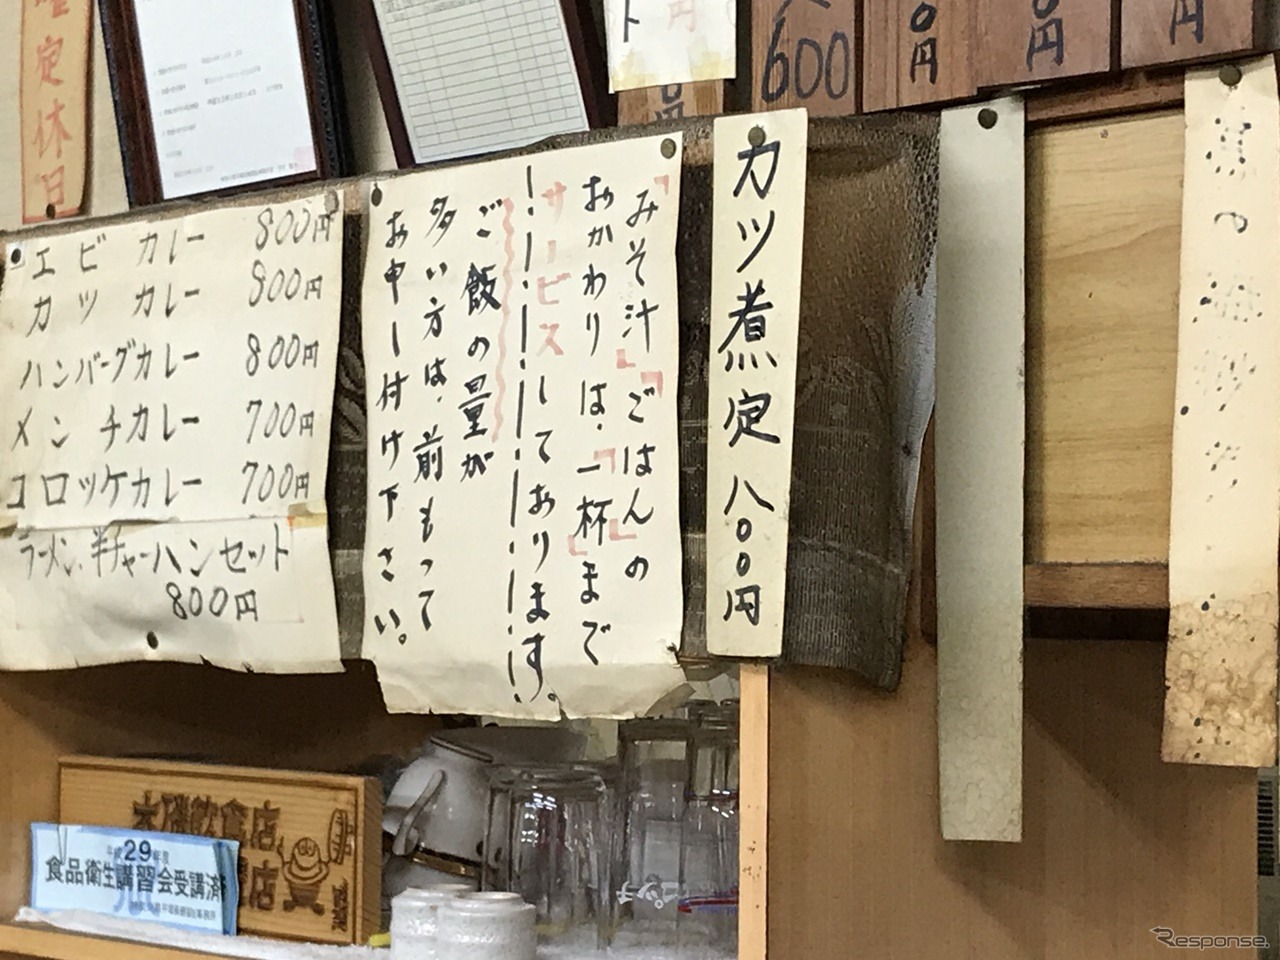 定休日
エビカレー 800円
カツカレー 800円
ハンバーグカレー 800円
メンチカレー 700円
コロッケカレー 700円
ラーメン、半チャーハンセット
800円
「みそ汁」「ごはん」の
おかわりは、「一杯」まで
サービスしております。
ご飯の量が
多い方は、前もって
お申し付け下さい。
カツ煮定 八〇〇円
600
0円
0円
円
円
大磯飲食店
店
平成29年度
食品衛生講習会受講済
Response.